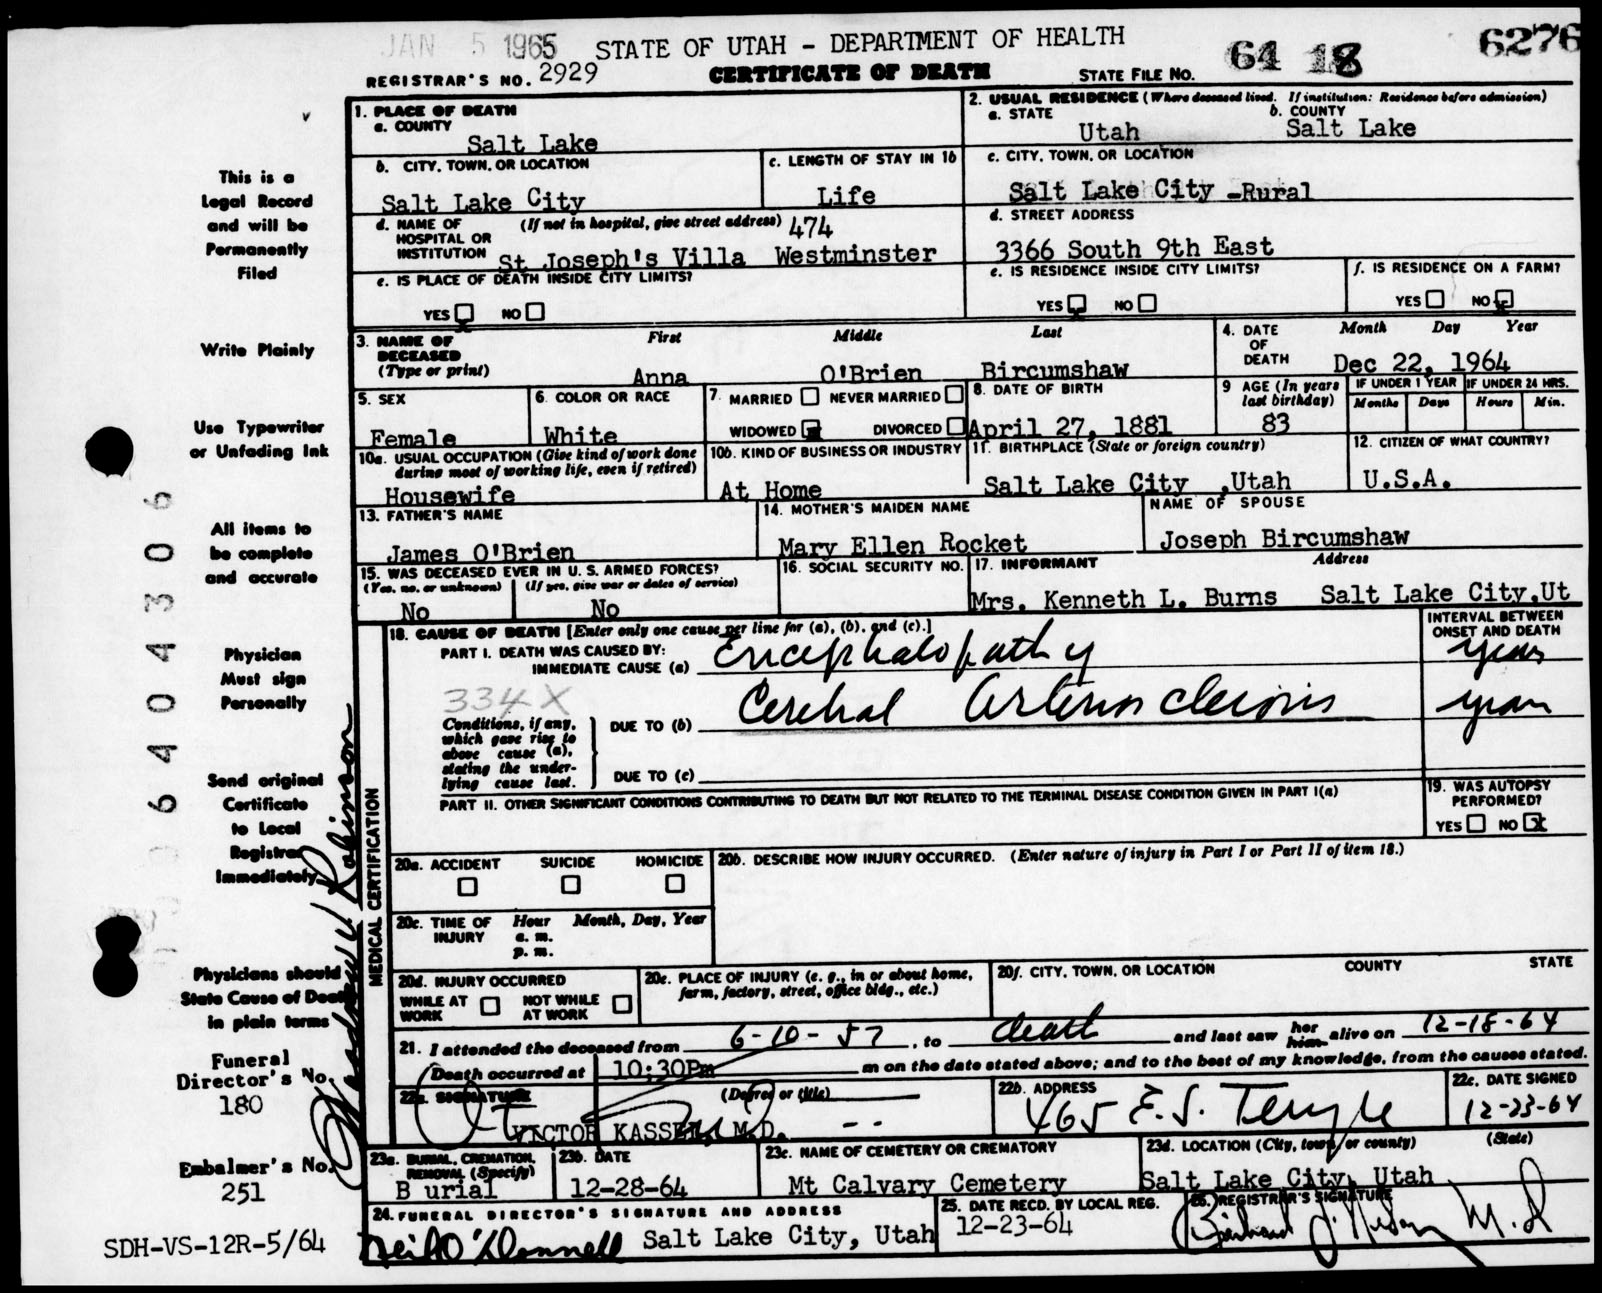 JAN 5 1965 STATE OF UTAH - DEPARTMENT OF HEALTH 64 18 6276
REGISTRAR'S NO. 2929 CERTIFICATE OF DEATH STATE FILE NO.
1. PLACE OF DEATH
a. COUNTY
Salt Lake
2. USUAL RESIDENCE (Where deceased lived. If institution: Residence before admission)
a. STATE b. COUNTY
Utah Salt Lake
b. CITY, TOWN, OR LOCATION
Salt Lake City
c. LENGTH OF STAY IN 1b
Life
c. CITY, TOWN, OR LOCATION
Salt Lake City -Rural
d. NAME OF HOSPITAL OR INSTITUTION (If not in hospital, give street address) 474
St Joseph's Villa Westminster
d. STREET ADDRESS
3366 South 9th East
e. IS PLACE OF DEATH INSIDE CITY LIMITS?
YES NO
e. IS RESIDENCE INSIDE CITY LIMITS?
YES NO
f. IS RESIDENCE ON A FARM?
YES NO
3. NAME OF DECEASED (Type or print)
First Middle Last
Anna O'Brien Bircumshaw
4. DATE OF DEATH Month Day Year
Dec 22, 1964
5. SEX
Female
6. COLOR OR RACE
White
7. MARRIED NEVER MARRIED
WIDOWED DIVORCED
8. DATE OF BIRTH
April 27, 1881
9 AGE (In years last birthday)
83
IF UNDER 1 YEAR IF UNDER 24 HRS.
Months Days Hours Min.
10a. USUAL OCCUPATION (Give kind of work done during most of working life, even if retired)
Housewife
10b. KIND OF BUSINESS OR INDUSTRY
At Home
11. BIRTHPLACE (State or foreign country)
Salt Lake City ,Utah
12. CITIZEN OF WHAT COUNTRY?
U.S.A.
13. FATHER'S NAME
James O'Brien
14. MOTHER'S MAIDEN NAME
Mary Ellen Rocket
NAME OF SPOUSE
Joseph Bircumshaw
15. WAS DECEASED EVER IN U. S. ARMED FORCES?
(Yes, no, or unknown) (If yes, give war or dates of service)
No No
16. SOCIAL SECURITY NO.
17. INFORMANT Address
Mrs. Kenneth L. Burns Salt Lake City,Ut
18. CAUSE OF DEATH [Enter only one cause per line for (a), (b), and (c).]
INTERVAL BETWEEN ONSET AND DEATH
PART I. DEATH WAS CAUSED BY:
IMMEDIATE CAUSE (a) Encephalopathy years
334X
Conditions, if any, which gave rise to above cause (a), stating the underlying cause last.
DUE TO (b) Cerebral Arteriosclerosis years
DUE TO (c)
PART II. OTHER SIGNIFICANT CONDITIONS CONTRIBUTING TO DEATH BUT NOT RELATED TO THE TERMINAL DISEASE CONDITION GIVEN IN PART I(a)
19. WAS AUTOPSY PERFORMED?
YES NO X
MEDICAL CERTIFICATION
20a. ACCIDENT SUICIDE HOMICIDE
20b. DESCRIBE HOW INJURY OCCURRED. (Enter nature of injury in Part I or Part II of item 18.)
20c. TIME OF INJURY Hour Month, Day, Year
a. m.
p. m.
20d. INJURY OCCURRED
WHILE AT WORK NOT WHILE AT WORK
20e. PLACE OF INJURY (e. g., in or about home, farm, factory, street, office bldg., etc.)
20f. CITY, TOWN, OR LOCATION COUNTY STATE
21. I attended the deceased from 6-10-57, to death and last saw her him alive on 12-18-64
Death occurred at 10:30Pm m on the date stated above; and to the best of my knowledge, from the causes stated.
22a. SIGNATURE (Degree or title)
VICTOR KASSEL, M.D.
22b. ADDRESS
465 E. S. Temple
22c. DATE SIGNED
12-23-64
23a. BURIAL, CREMATION, REMOVAL (Specify)
B urial
23b. DATE
12-28-64
23c. NAME OF CEMETERY OR CREMATORY
Mt Calvary Cemetery
23d. LOCATION (City, town, or county) (State)
Salt Lake City, Utah
24. FUNERAL DIRECTOR'S SIGNATURE AND ADDRESS
Neil O'Donnell Salt Lake City, Utah
25. DATE RECD. BY LOCAL REG.
12-23-64
26. REGISTRAR'S SIGNATURE
M.D
This is a
Legal Record
and will be
Permanently
Filed
Write Plainly
Use Typewriter
or Unfading Ink
All items to
be complete
and accurate
Physician
Must sign
Personally
Send original
Certificate
to Local
Registrar
Immediately
Physicians should
State Cause of Death
in plain terms
Funeral
Director's No.
180
Embalmer's No.
251
SDH-VS-12R-5/64
6404306
Robinson